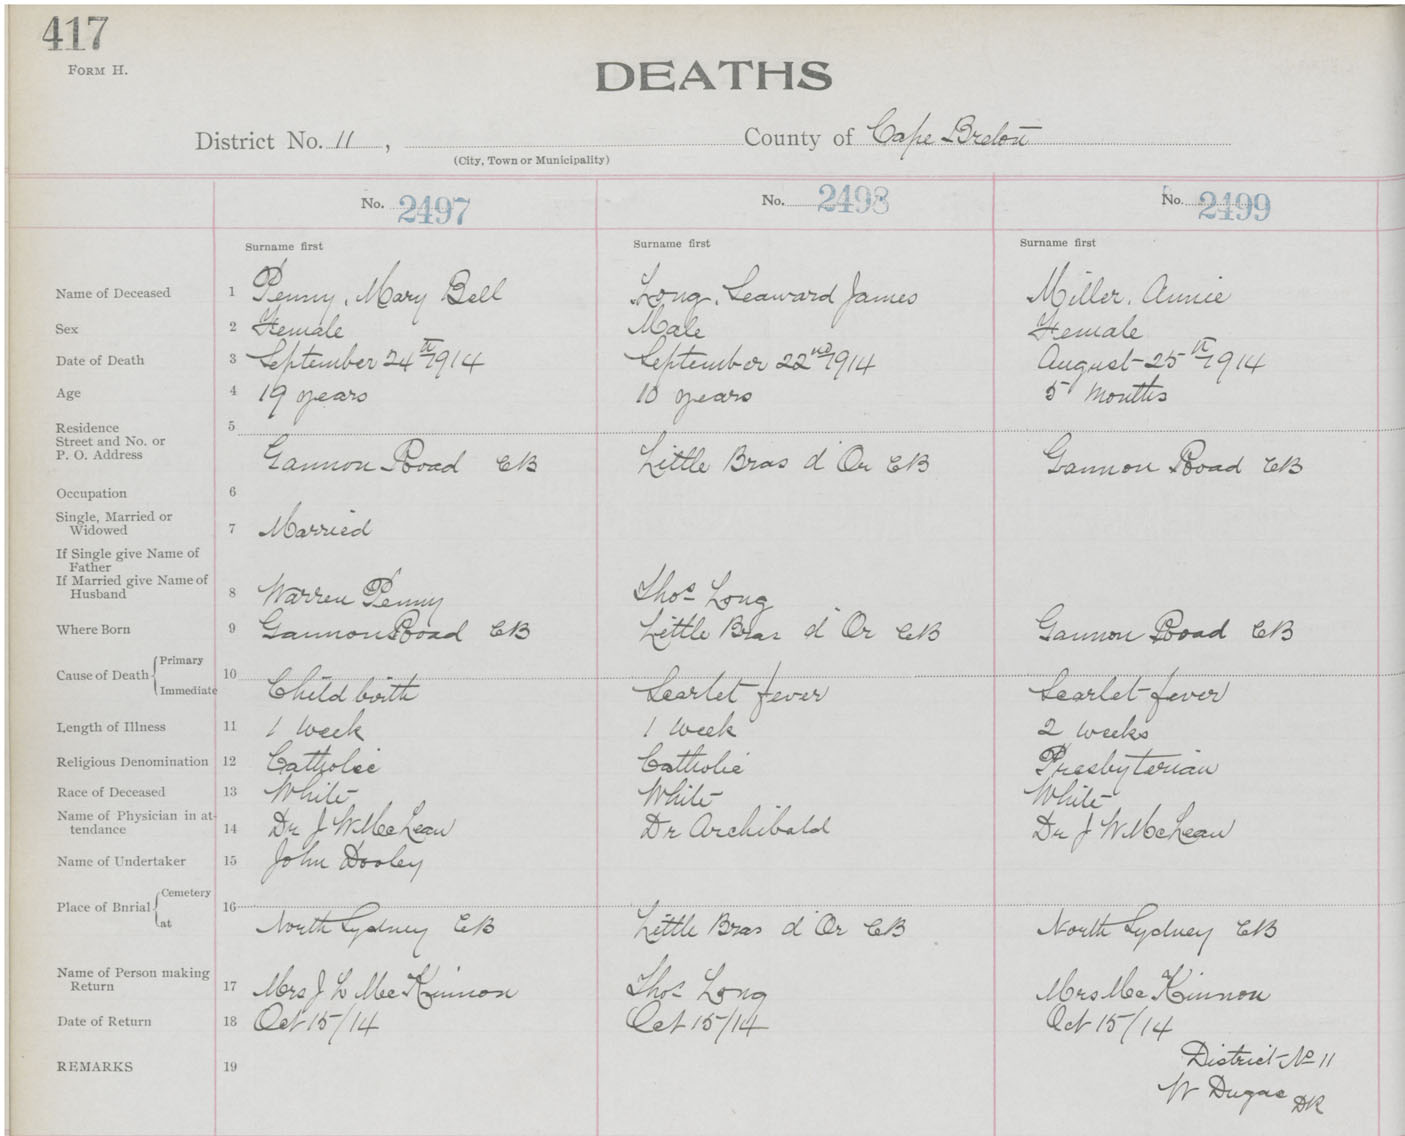 417
FORM H.
DEATHS
District No. 11, County of Cape Breton
(City, Town or Municipality)
No. 2497 No. 2498 No. 2499
Surname first Surname first Surname first
Name of Deceased 1 Penny, Mary Bell Long, Seaward James Miller, Annie
Sex 2 Female Male Female
Date of Death 3 September 24th 1914 September 22nd 1914 August 25th 1914
Age 4 19 years 10 years 5 Months
Residence 5
Street and No. or
P. O. Address Gannon Road CB Little Bras d'Or CB Gannon Road CB
Occupation 6
Single, Married or
Widowed 7 Married
If Single give Name of
Father
If Married give Name of
Husband 8 Warren Penny Thos Long
Where Born 9 Gannon Road CB Little Bras d'Or CB Gannon Road CB
Cause of Death Primary 10
Immediate Child birth Scarlet fever Scarlet fever
Length of Illness 11 1 week 1 week 2 weeks
Religious Denomination 12 Catholic Catholic Presbyterian
Race of Deceased 13 White White White
Name of Physician in at-
tendance 14 Dr J W McLean Dr Archibald Dr J W McLean
Name of Undertaker 15 John Dooley
Place of Bnrial Cemetery 16
at North Sydney CB Little Bras d'Or CB North Sydney CB
Name of Person making
Return 17 Mrs J L McKinnon Thos Long Mrs McKinnon
Date of Return 18 Oct 15/14 Oct 15/14 Oct 15/14
REMARKS 19 District No 11
W Dugas DR